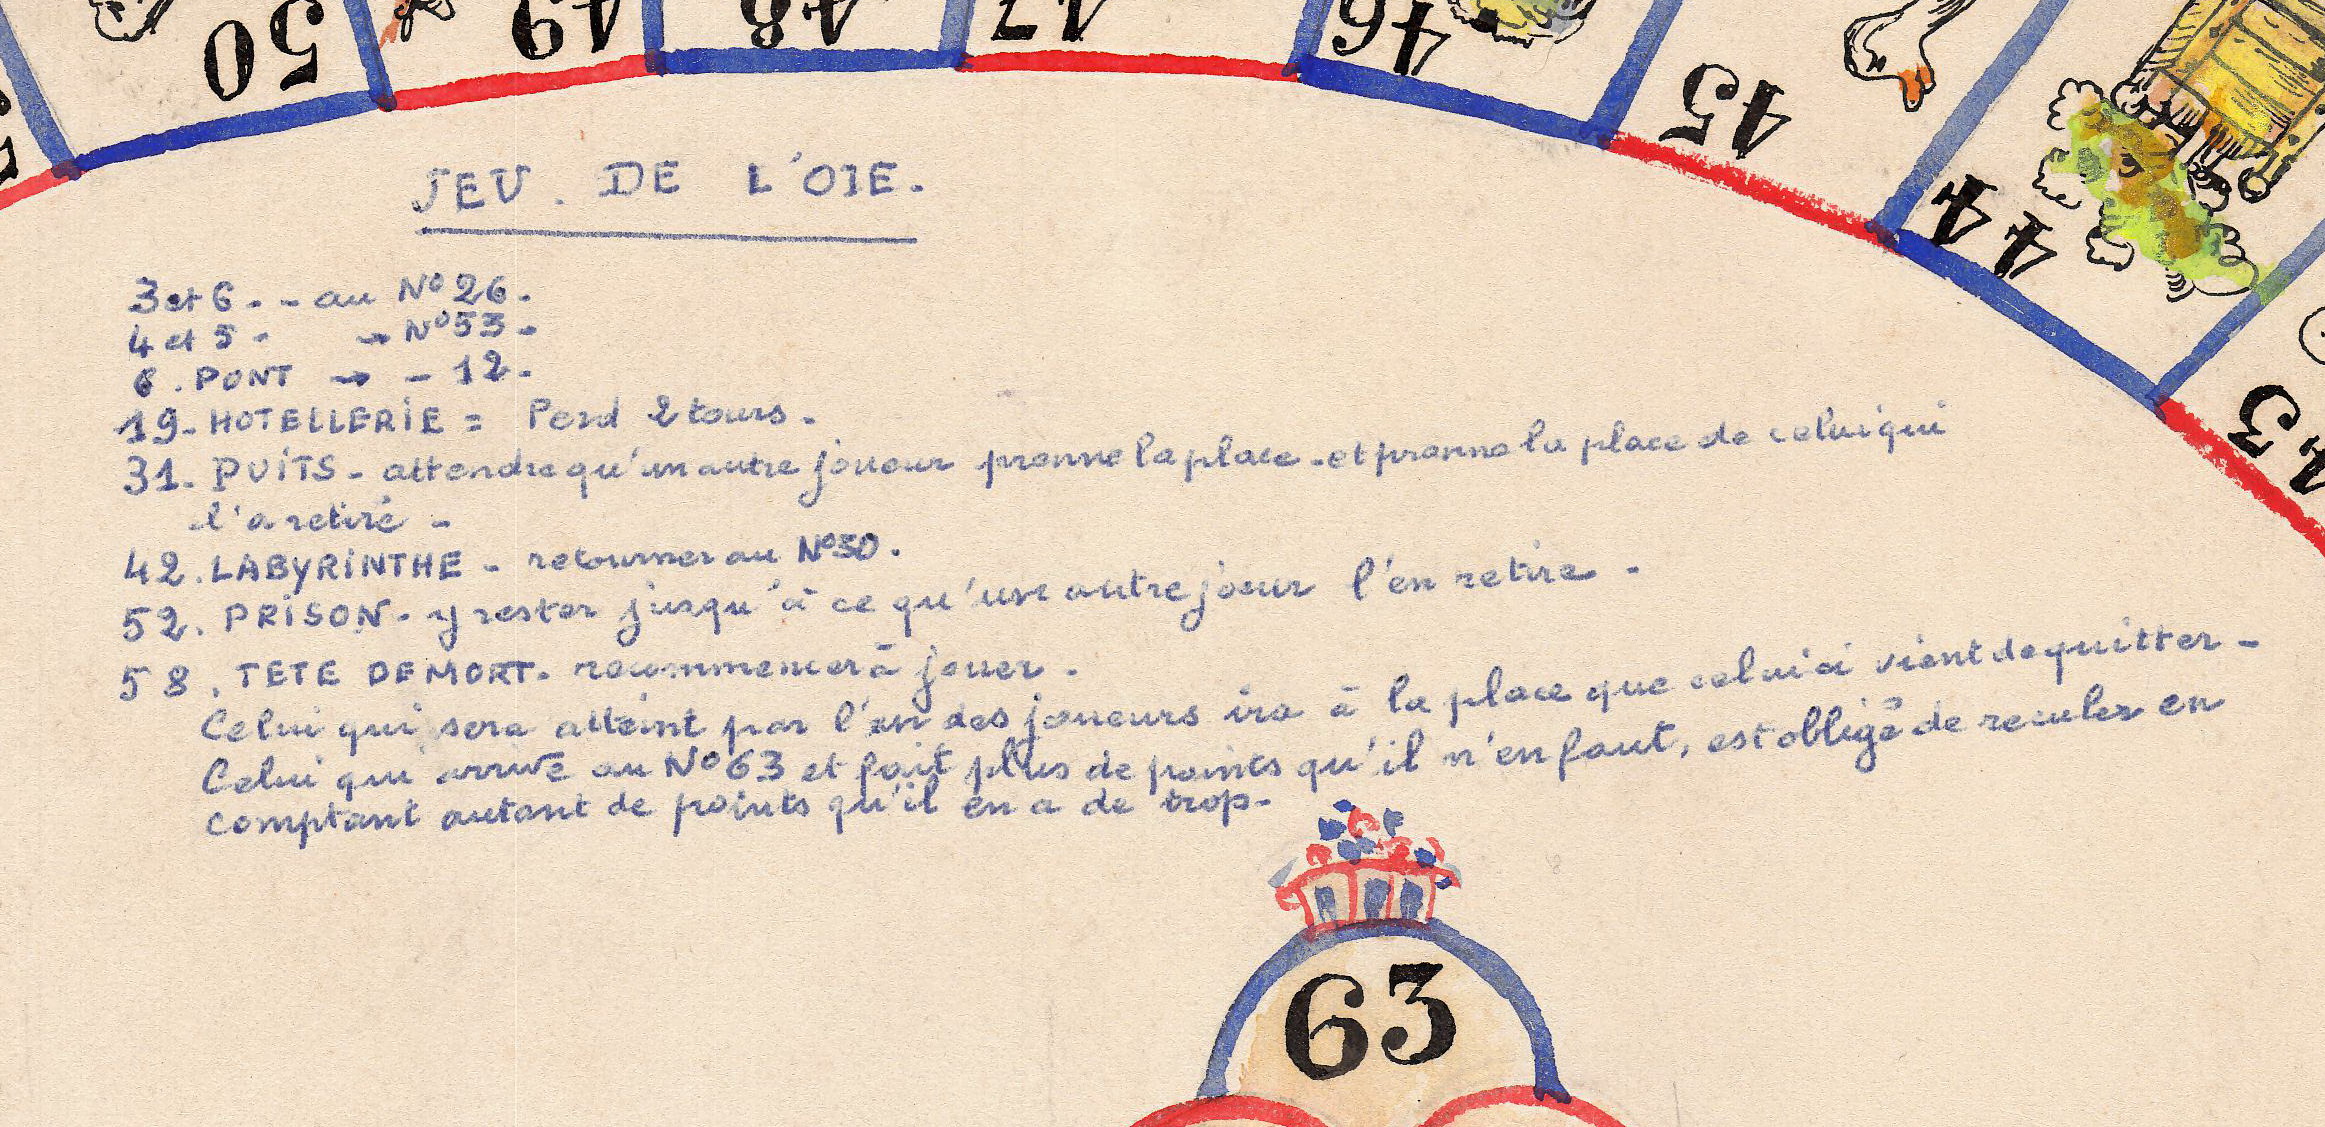 50
49
48
47
46
45
44
43
JEU. DE L'OIE.
3 et 6 - - au N° 26.
4 et 5 - → N° 53 -
6. PONT → - 12.
19- HOTELLERIE = Perd 2 tours.
31. PUITS - attendre qu'un autre joueur prenne la place - et prenne la place de celui qui
l'a retiré -
42. LABYRINTHE - retourner au N°30.
52. PRISON - y rester jusqu'à ce qu'un autre joeur l'en retire -
58. TETE DE MORT. recommencer à jouer.
Celui qui sera atteint par l'un des joueurs ira à la place que celui ci vient de quitter -
Celui qui arrive au N° 63 et fait plus de points qu'il n'en faut, est obligé de reculer en
comptant autant de points qu'il en a de trop -
63